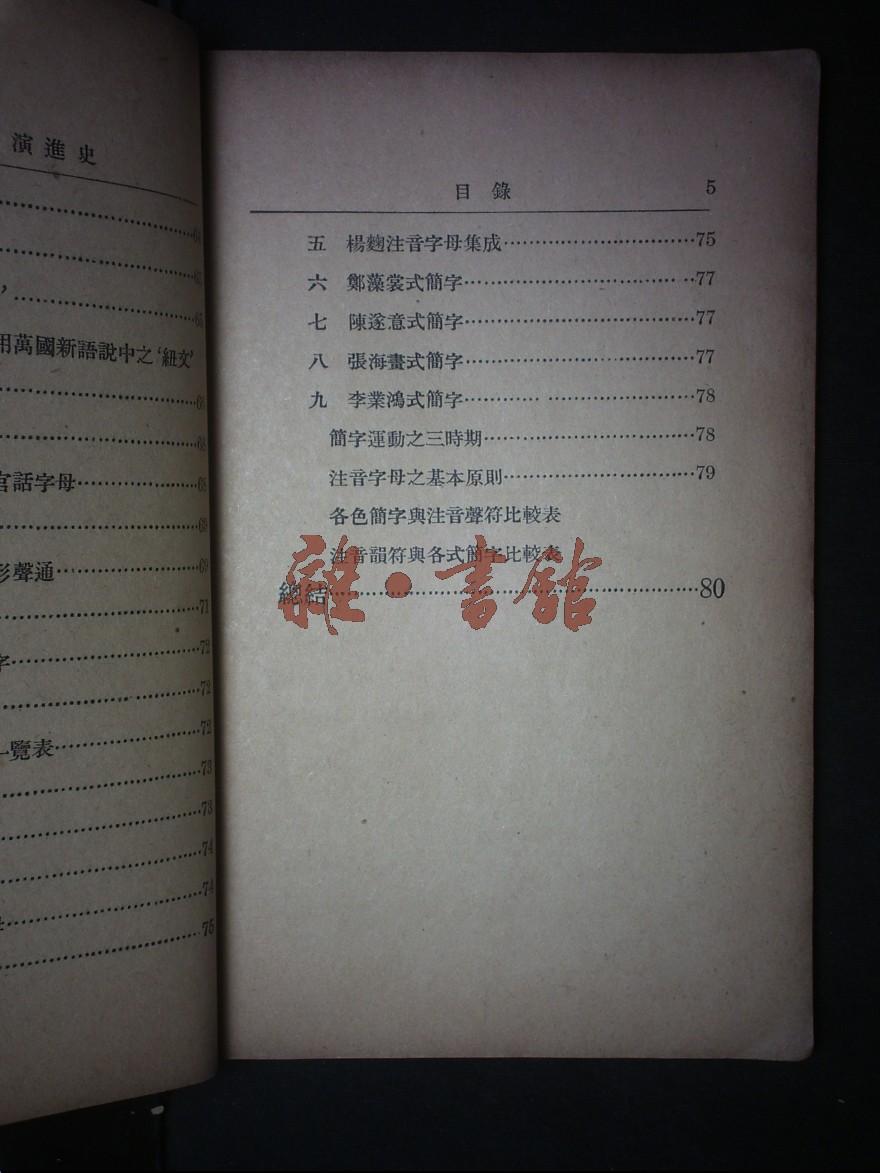 演進史
64
65
，65
用萬國新語說中之‘紐文’
68
68
官話字母68
69
形聲通69
71
字72
72
一覽表72
73
73
74
74
75
目錄 5
五 楊麴注音字母集成75
六 鄭藻裳式簡字77
七 陳遂意式簡字77
八 張海畫式簡字77
九 李業鴻式簡字78
簡字運動之三時期78
注音字母之基本原則79
各色簡字與注音聲符比較表
注音韻符與各式簡字比較表
總結80
雜·書館